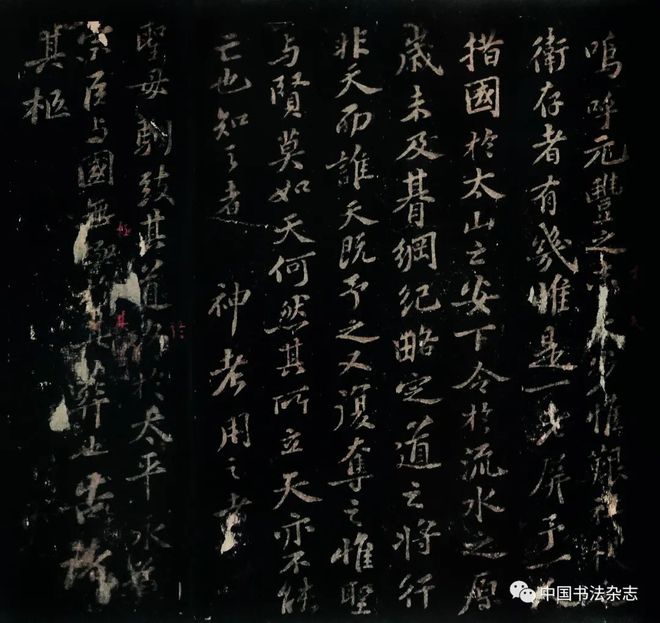 嗚呼元豐之末惟艱
衛存者有幾惟是一老屏予一人
措國於太山之安下令於流水之原
歲未及朞綱紀略定道之將行
非天而誰天既予之又復奪之惟聖
与賢莫如天何然其所立天亦不能
亡也知之者 神考用之者
聖母馴致其道於太平永為
宗臣与國無其葬也告諸
其柩
中国书法杂志